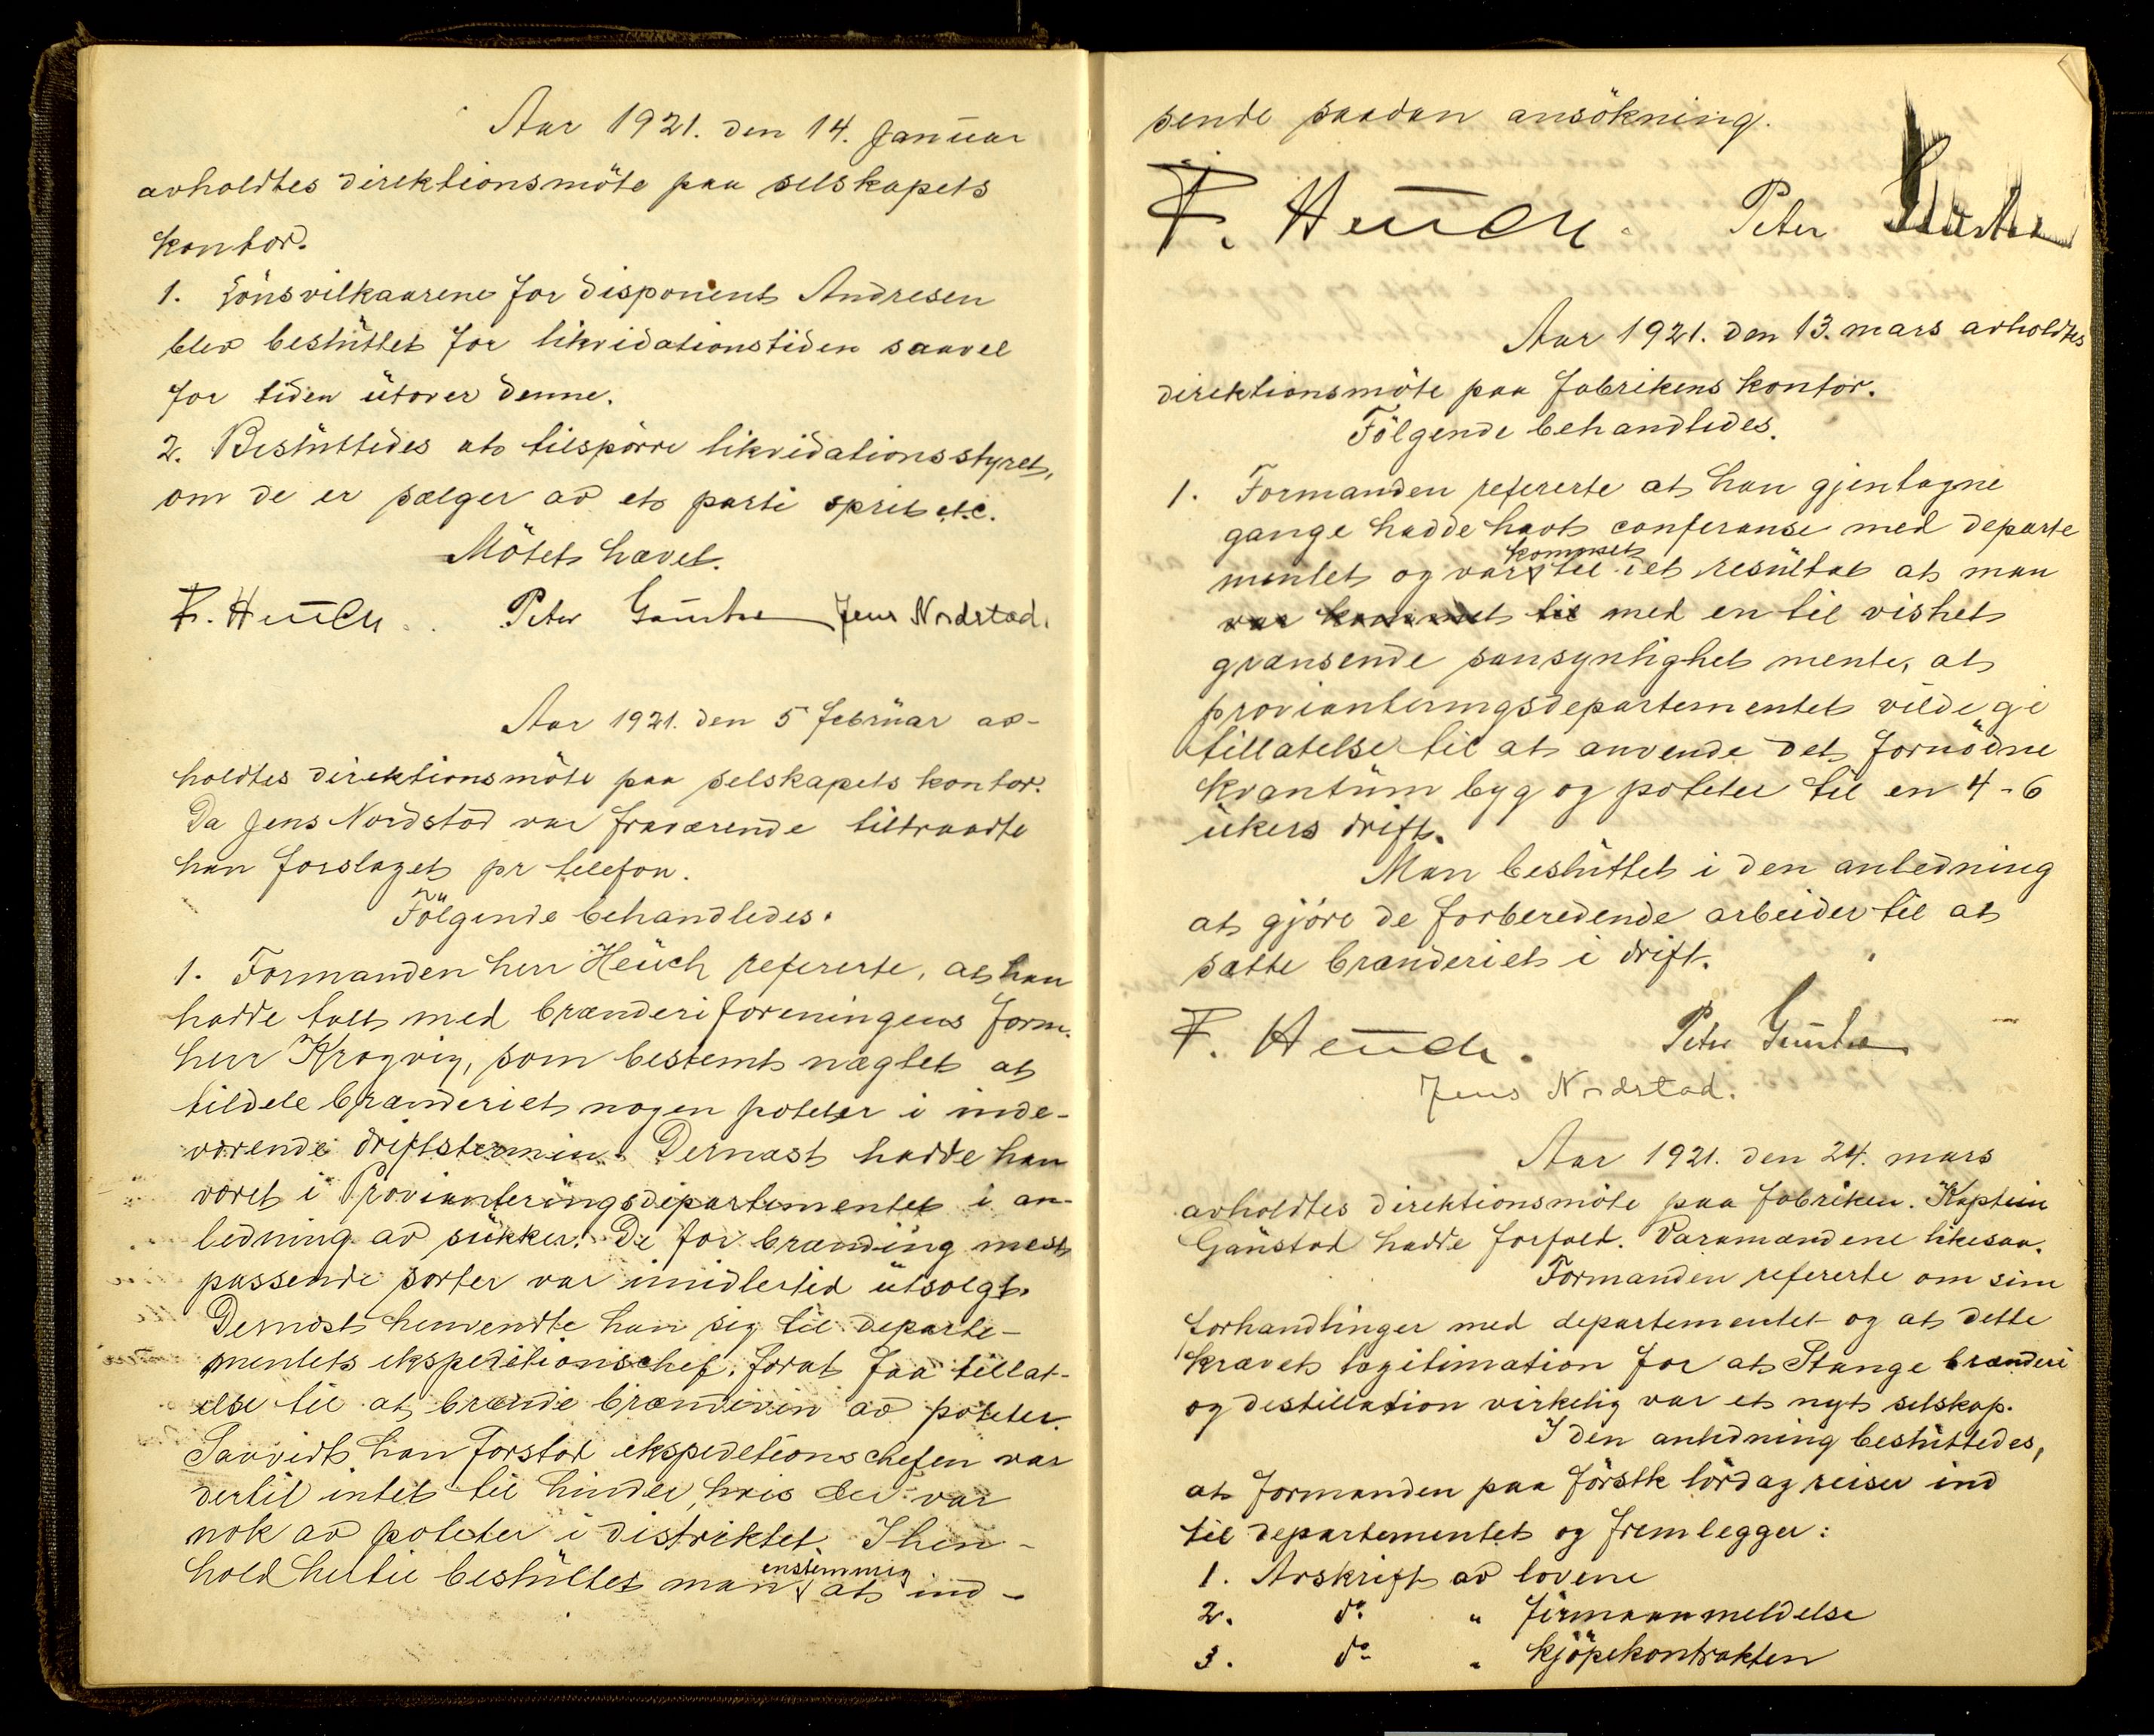 Aar 1921. den 14. Januar
avholdtes direktionsmöte paa selskapets
kontor.
1. Lönsvilkaarene for disponent Andresen
blev besluttet for likvidationstiden saavel
for tiden utover denne.
2. Besluttedes at tilspörre likvidationsstyret,
om de er sælger av et parti sprit etc.
Mötet hævet.
F. Heuch. Peter Jens Nordstad.
Aar 1921. den 5 februar av-
holdtes direktionsmöte paa selskapets kontor.
Da Jens Nordstad var fraværende tiltraadte
han forslaget pr telefon.
Fölgende behandledes.
1. Formanden herr Heuch refererte, at han
hadde talt med brænderiforeningens form.
herr Krogvig, som bestemt nægtet at
tildele brænderiet nogen poteter i inde-
værende driftstermin. Dernæst hadde han
været i Provianteringsdepartementet i an-
ledning av sukker. De for brænding mest
passende sorter var imidlertid utsolgt.
Dernæst henvendte han sig til departe-
mentets ekspeditionschef, forat faa tillat-
else til at brænde brændevin av poteter.
Saavidt han forstod ekspeditionschefen var
dertil intet til hinder, hvis der var
nok av poteter i distriktet. I hen-
hold hertil besluttet man enstemmig at ind-
sende saadan ansökning.
F. Heuch. Peter
Aar 1921. den 13. mars avholdtes
direktionsmöte paa fabrikens kontor.
Fölgende behandledes.
1. Formanden refererte at han gjentagne
gange hadde havt conferanse med departe
mentet og var kommet til et resultat at man
var kommet til med en til vishet
grænsende sansynlighet mente, at
provianteringsdepartementet vilde gi
tillatelse til at anvende det fornödne
kvantum byg og poteter til en 4-6
ukers drift.
Man besluttet i den anledning
at gjöre de forberedende arbeider til at
sætte brænderiet i drift.
F. Heuch. Peter
Jens Nordstad.
Aar 1921. den 24. mars
avholdtes direktionsmöte paa fabriken. Kaptein
Gaustad hadde forfald. Varamændene likesaa.
Formanden refererte om sine
forhandlinger med departementet og at dette
krævet legitimation for at Stange brænderi
og destillation virkelig var et nyt selskap.
I den anledning besluttedes,
at formanden paa förstk lördag reiser ind
til departementet og fremlegger:
1. Avskrift av lovene
2. do " firmaanmeldelse
3. do " kjöpekontrakten